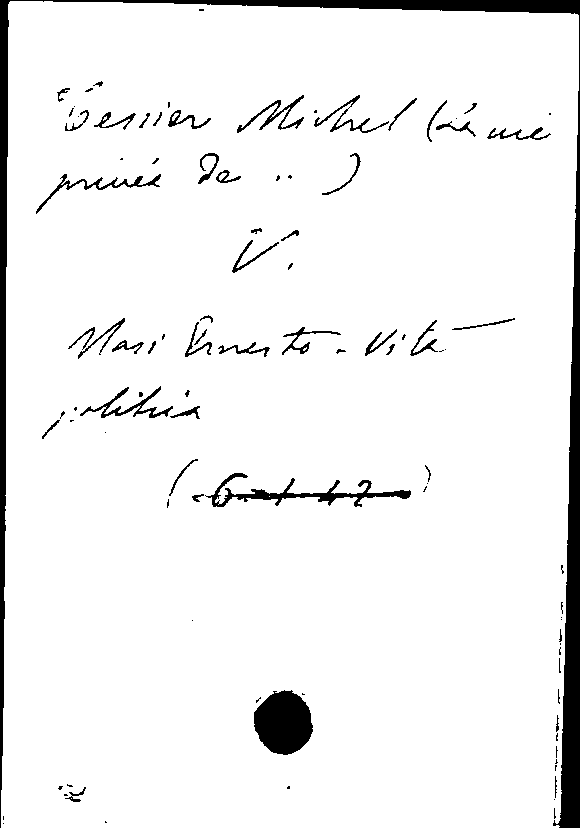 Tessier Michel (La vie
privée de .. )
V.
Masi Ernesto - Vita
politica
( 6-1 42 )